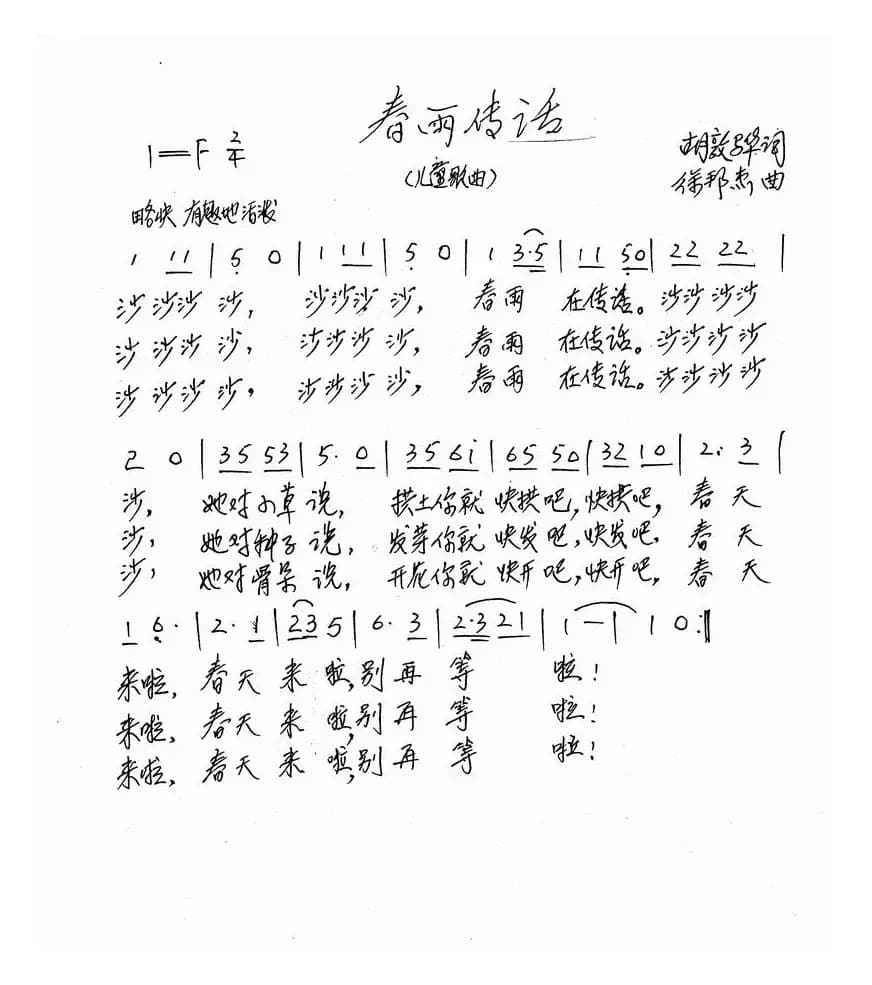 春雨传话
1=F 2/4
胡敦华词
(儿童歌曲)
徐邦杰曲
略快 有趣地 活泼
1 11 | 5 0 | 1 11 | 5 0 | 1 3·5 | 11 50 | 22 22 |
沙 沙沙 沙, 沙沙沙 沙, 春雨 在传话。沙沙 沙沙
沙 沙沙 沙, 沙沙沙 沙, 春雨 在传话。沙沙沙沙
沙 沙沙 沙, 沙沙沙 沙, 春雨 在传话。沙沙沙沙
2 0 | 35 53 | 5· 0 | 35 6i | 65 50 | 32 10 | 2· 3 |
沙, 她对小草说, 拱土你就 快拱吧,快拱吧, 春 天
沙, 她对种子说, 发芽你就 快发吧,快发吧, 春 天
沙, 她对骨朵说, 开花你就 快开吧,快开吧, 春 天
1 6· | 2· 1 | 23 5 | 6· 3 | 2·3 21 | 1 — | 1 0 :||
来啦, 春天 来 啦,别再 等 啦!
来啦, 春天 来 啦,别再 等 啦!
来啦, 春天 来 啦,别再 等 啦!